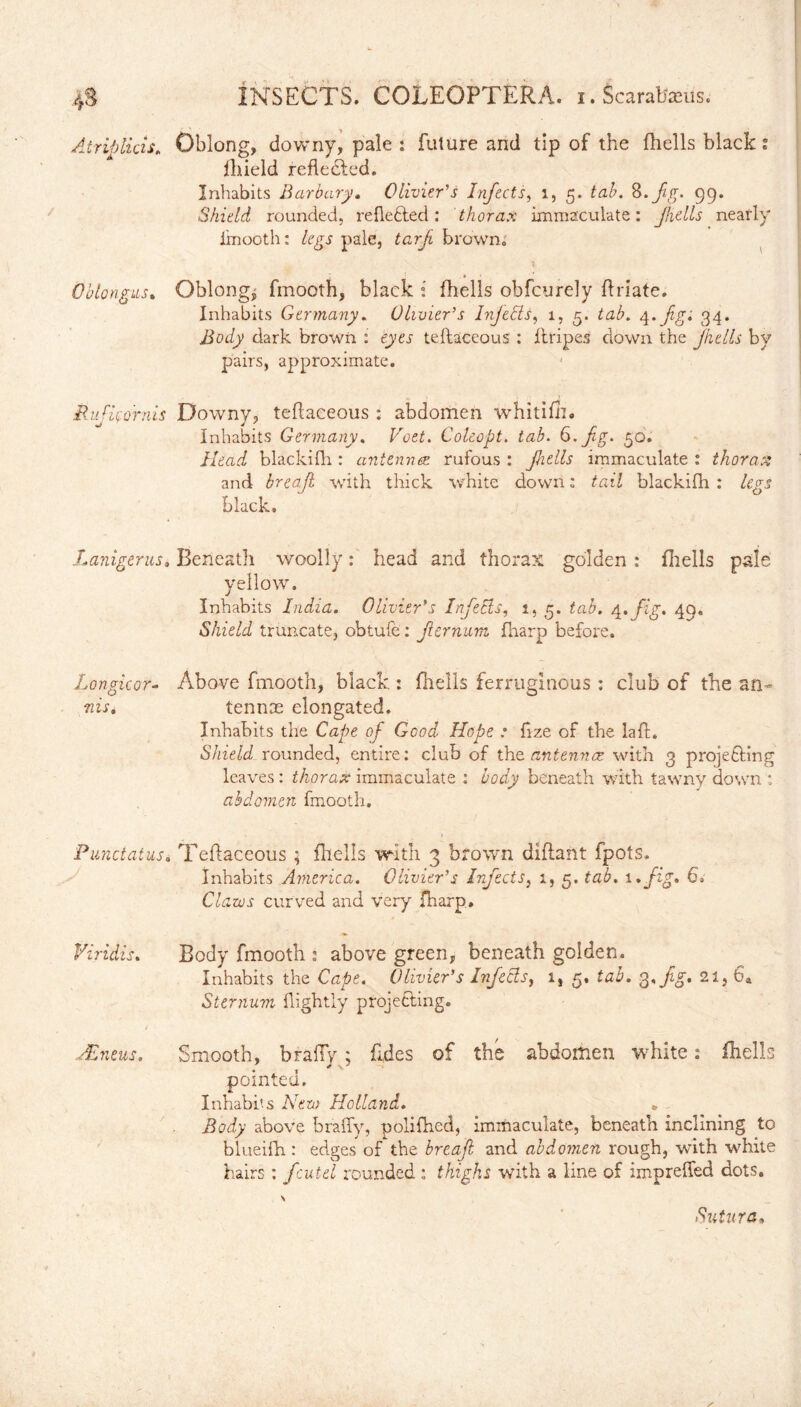 48 INSECTS. COLEOPTERA. 1. Scarabæus.
Atriplicis. Oblong, downy, pale : future and tip of the ſhells black :
ſhield reflected.
Inhabits Barbary. Olivier's Inſects, 1, 5. tab. 8. fig. 99.
Shield rounded, reflected : thorax immaculate : ſhells nearly
ſmooth : legs pale, tarſi brown.
Oblongus. Oblong, ſmooth, black : ſhells obſcurely ſtriate.
Inhabits Germany. Olivier's Inſects, 1, 5. tab. 4. fig. 34.
Body dark brown : eyes teſtaceous : ſtripes down the ſhells by
pairs, approximate.
Ruficornis Downy, teſtaceous : abdomen whitiſh.
Inhabits Germany. Voet. Coleopt. tab. 6. fig. 50.
Head blackiſh : antennæ rufous : ſhells immaculate : thorax
and breaſt with thick white down : tail blackiſh : legs
black.
Lanigerus. Beneath woolly : head and thorax golden : ſhells pale
yellow.
Inhabits India. Olivier's Inſects, 1, 5. tab. 4. fig. 49.
Shield truncate, obtuſe : ſternum ſharp before.
Longicor- Above ſmooth, black : ſhells ferruginous : club of the an-
nis. tennæ elongated.
Inhabits the Cape of Good Hope : ſize of the laſt.
Shield rounded, entire : club of the antennæ with 3 projecting
leaves : thorax immaculate : body beneath with tawny down :
abdomen ſmooth.
Punctatus. Teſtaceous ; ſhells with 3 brown diſtant ſpots.
Inhabits America. Olivier's Inſects, 1, 5. tab. 1. fig. 6.
Claws curved and very ſharp.
Viridis. Body ſmooth : above green, beneath golden.
Inhabits the Cape. Olivier's Inſects, 1, 5. tab. 3. fig. 21, 6.
Sternum ſlightly projecting.
Æneus. Smooth, braſſy ; ſides of the abdomen white : ſhells
pointed.
Inhabits New Holland.
Body above braſſy, poliſhed, immaculate, beneath inclining to
blueiſh : edges of the breaſt and abdomen rough, with white
hairs : ſcutel rounded : thighs with a line of impreſſed dots.
Sutura.